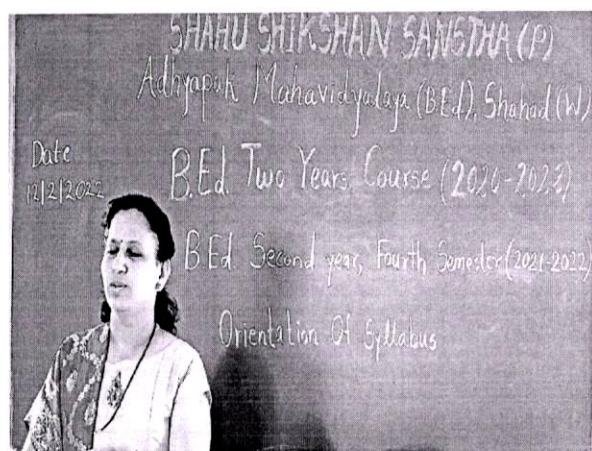 SHAHU SHIKSHAN SANSTHA (P)
Adhyapak Mahavidyalaya (B.Ed), Shahad (W)
Date
12/2/2022
B.Ed. Two Years Course (2020-2022)
B.Ed. Second year, Fourth Semester (2021-2022)
Orientation Of Syllabus